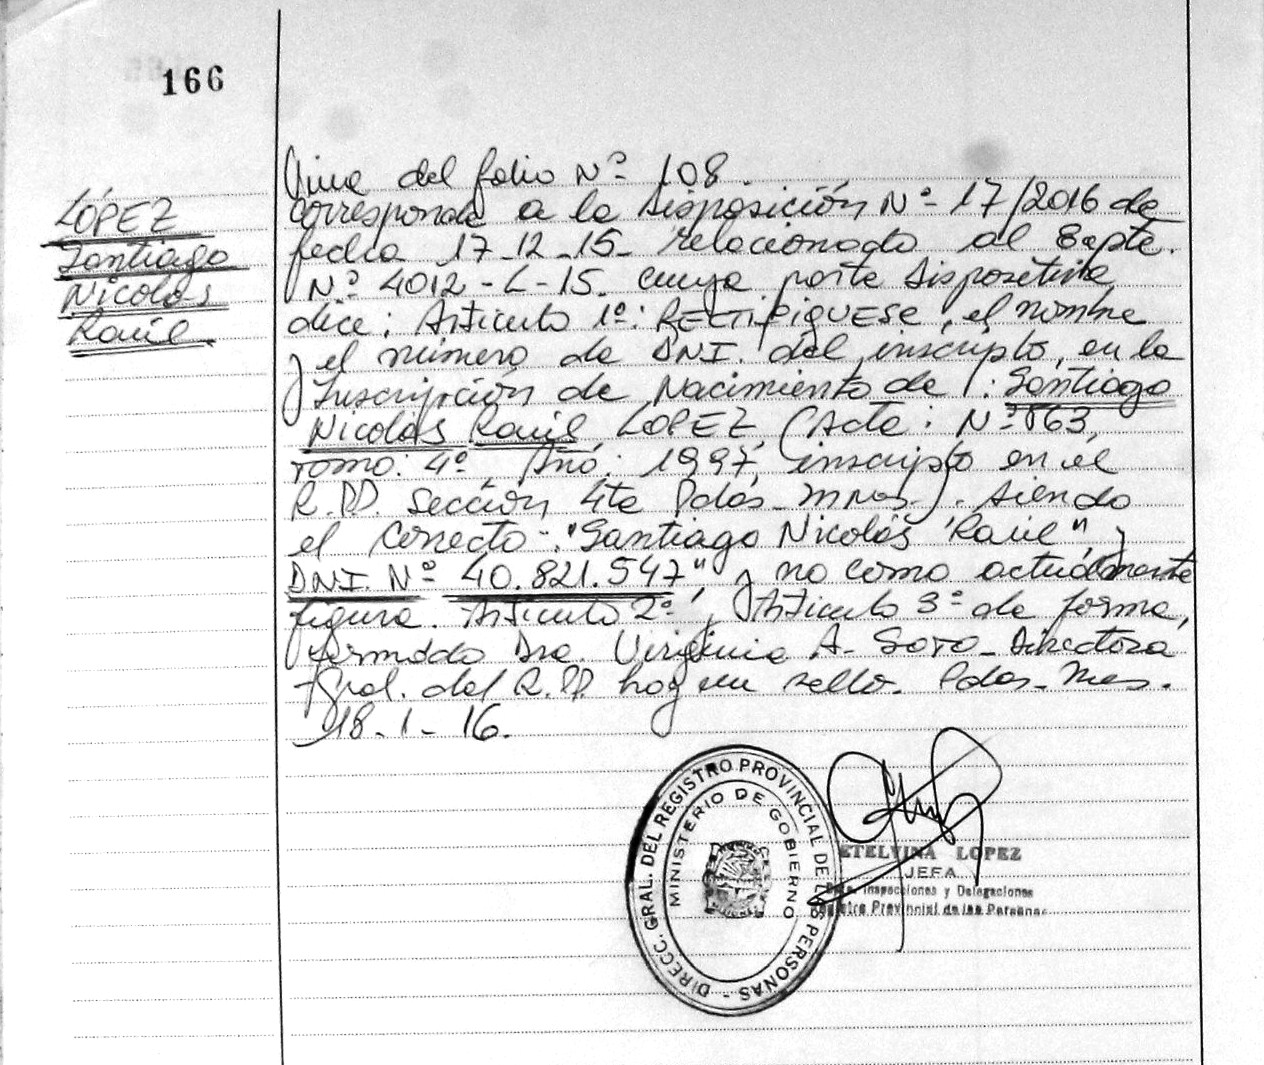 166
LÓPEZ
Santiago
Nicolás
Raúl.
Viene del folio Nº 108.
Corresponde a la Disposición Nº 17/2016 de
fecha 17-12-15- relacionado al Expte.
Nº 4012-L-15. cuya parte Dispositiva
dice: Artículo 1º: RECTIFIQUESE, el nombre
y el número de DNI. del inscripto, en la
Inscripción de Nacimiento de: Santiago
Nicolás Raúl LOPEZ, (Acta: Nº 863,
Tomo: 4º, Año: 1997, inscripto en el
R.PP. Sección 4ta Pdas-Mnes.). siendo
el Correcto: "Santiago Nicolás Raúl" y
DNI. Nº 40.821.547", y no como actualmente
figura. Artículo 2º, Artículo 3º de forma,
firmado Dra. Virginia A. SOTO- Directora
Gral. del R.PP hay un sello. Pdas-Mnes.
18-1-16.
DIRECC. GRAL. DEL REGISTRO PROVINCIAL DE LAS PERSONAS -
MINISTERIO DE GOBIERNO
ETELVINA LOPEZ
JEFA
Inspecciones y Delegaciones
Registro Provincial de las Personas